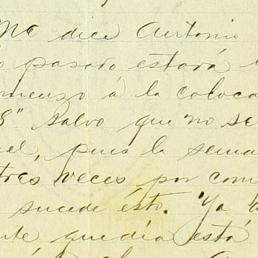 Me dice Antonio
pasado estará
comienzo á la coloca
salvo que no se
pues la sema
tres veces por com
sucede ésto. Ya
que día está